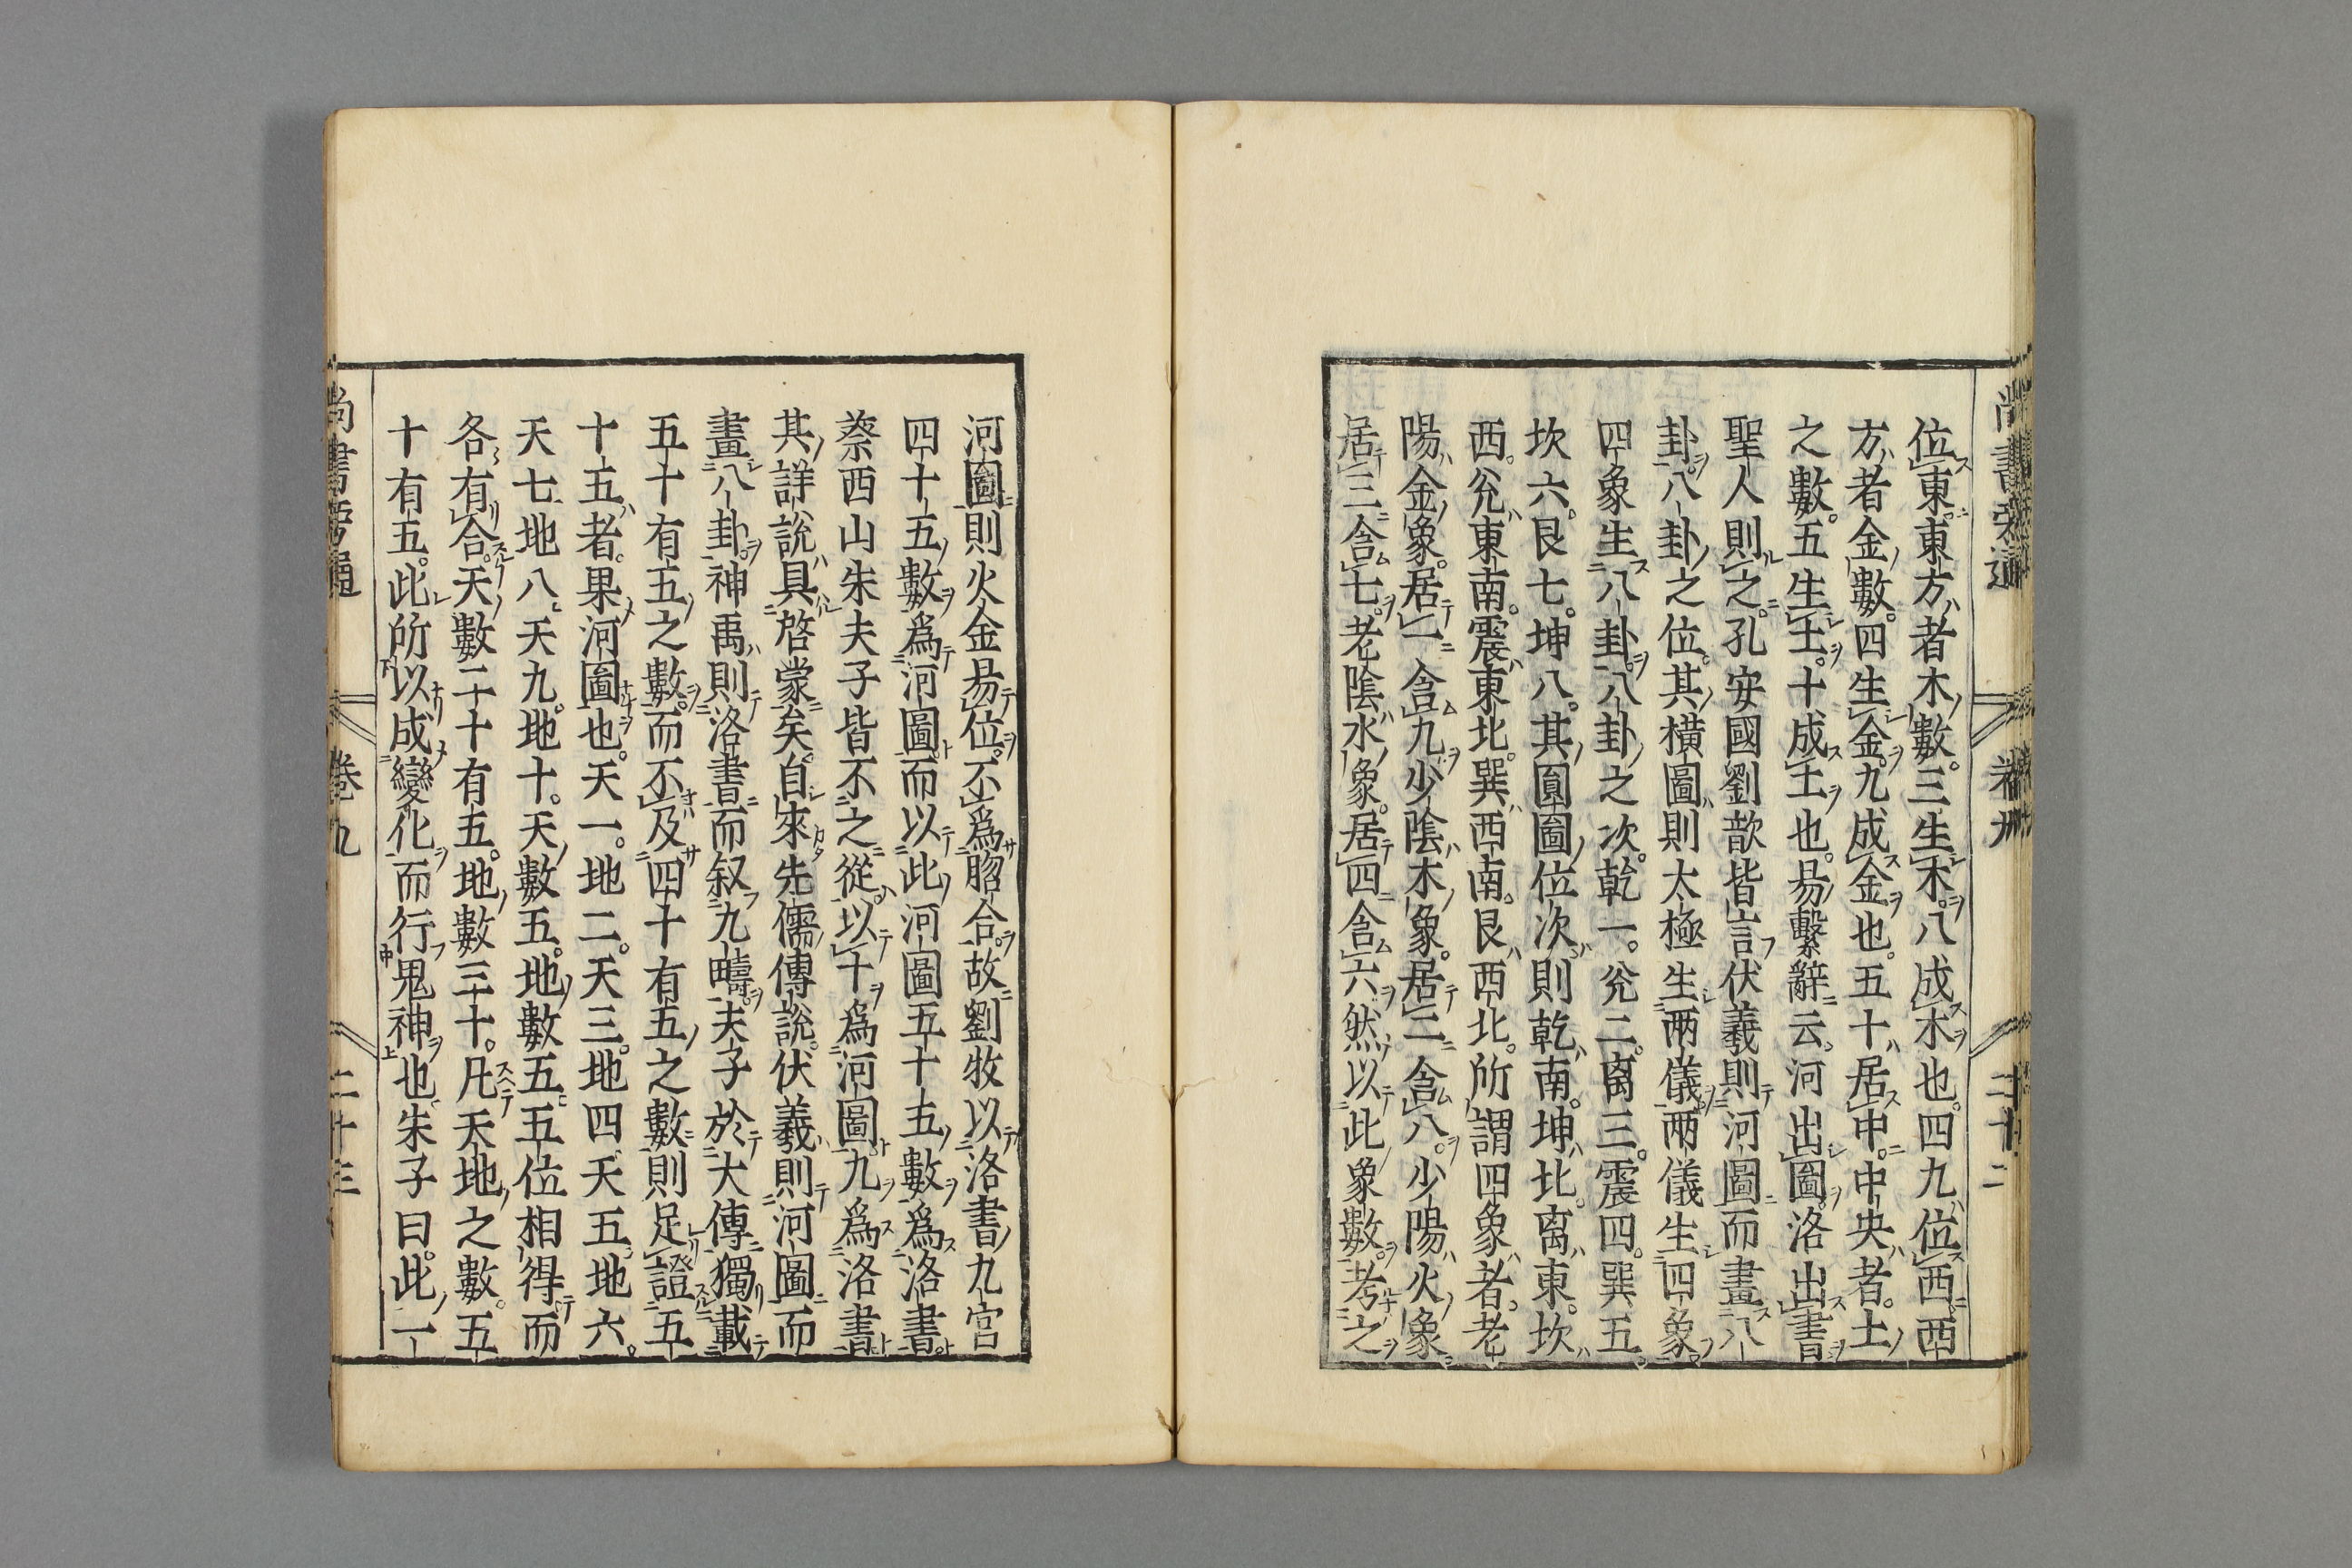 位東東方者木數三生木八成木也四九位西西
方者金數四生金九成金也五十居中中央者土
之數五生土十成土也易繫辭云河出圖洛出書
聖人則之孔安國劉歆皆言伏羲則河圖而畫八
卦八卦之位其橫圖則太極生兩儀兩儀生四象
四象生八卦八卦之次乾一兊二离三震四巽五
坎六艮七坤八其圓圖位次則乾南坤北离東坎
西兊東南震東北巽西南艮西北所謂四象者老
陽金象居一含九少陰木象居二含八少陽火象
居三含七老陰水象居四含六然以此象數考之
河圖則火金易位不爲脗合故劉牧以洛書九宮
四十五數爲河圖而以此河圖五十五數爲洛書
蔡西山朱夫子皆不之從以十爲河圖九爲洛書
其詳說具啓蒙矣自來先儒傳說伏羲則河圖而
畫八卦神禹則洛書而叙九疇夫子於大傳獨載
五十有五之數而不及四十有五之數則足證五
十五者果河圖也天一地二天三地四天五地六
天七地八天九地十天數五地數五五位相得而
各有合天數二十有五地數三十凡天地之數五
十有五此所以成變化而行鬼神也朱子曰此一
尚書旁通
卷九
二十三